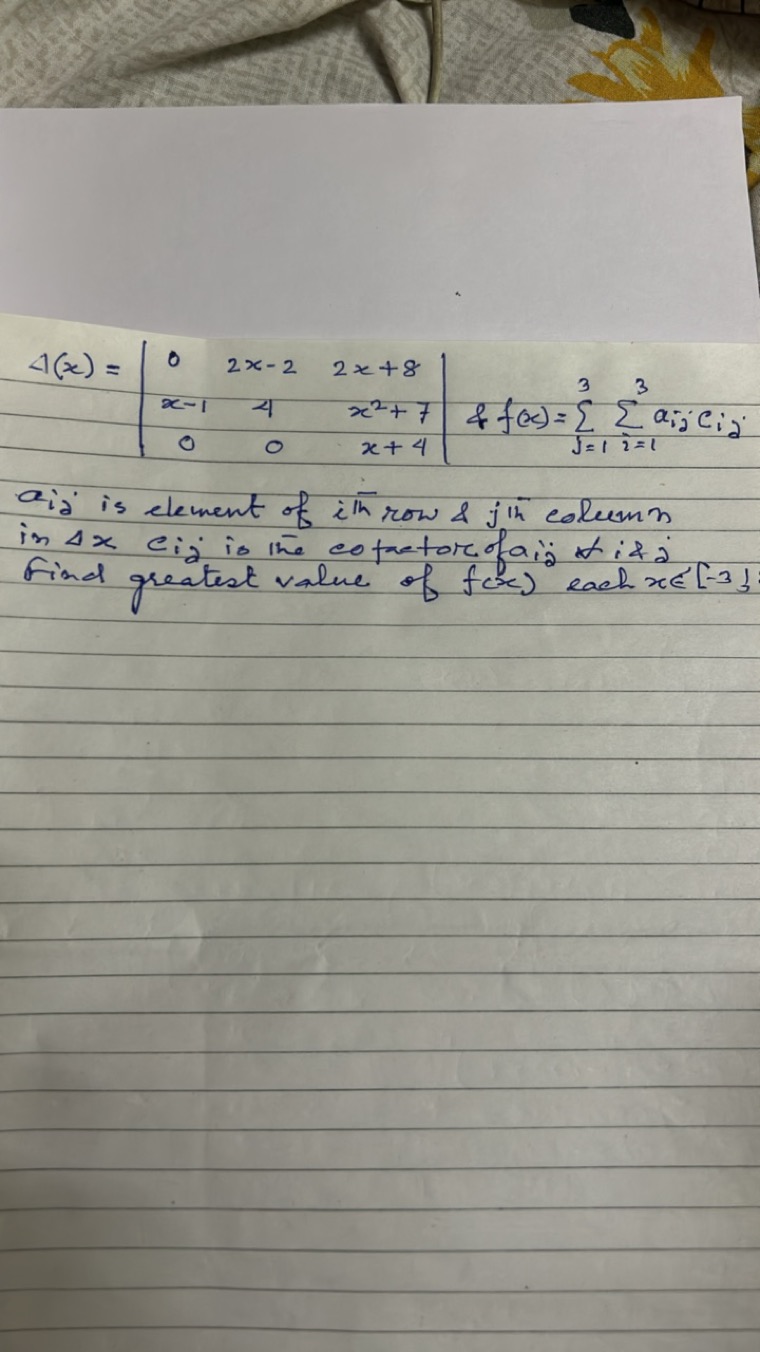 Δ(x) = | 0 2x-2 2x+8 |
| x-1 4 x²+7 | & f(x) = 3 Σ j=1 3 Σ i=1 aij cij
| 0 0 x+4 |
aij is element of ith row & jth column
in Δx cij is the cofactor of aij ∀ i & j
Find greatest value of f(x) each x∈[-3,